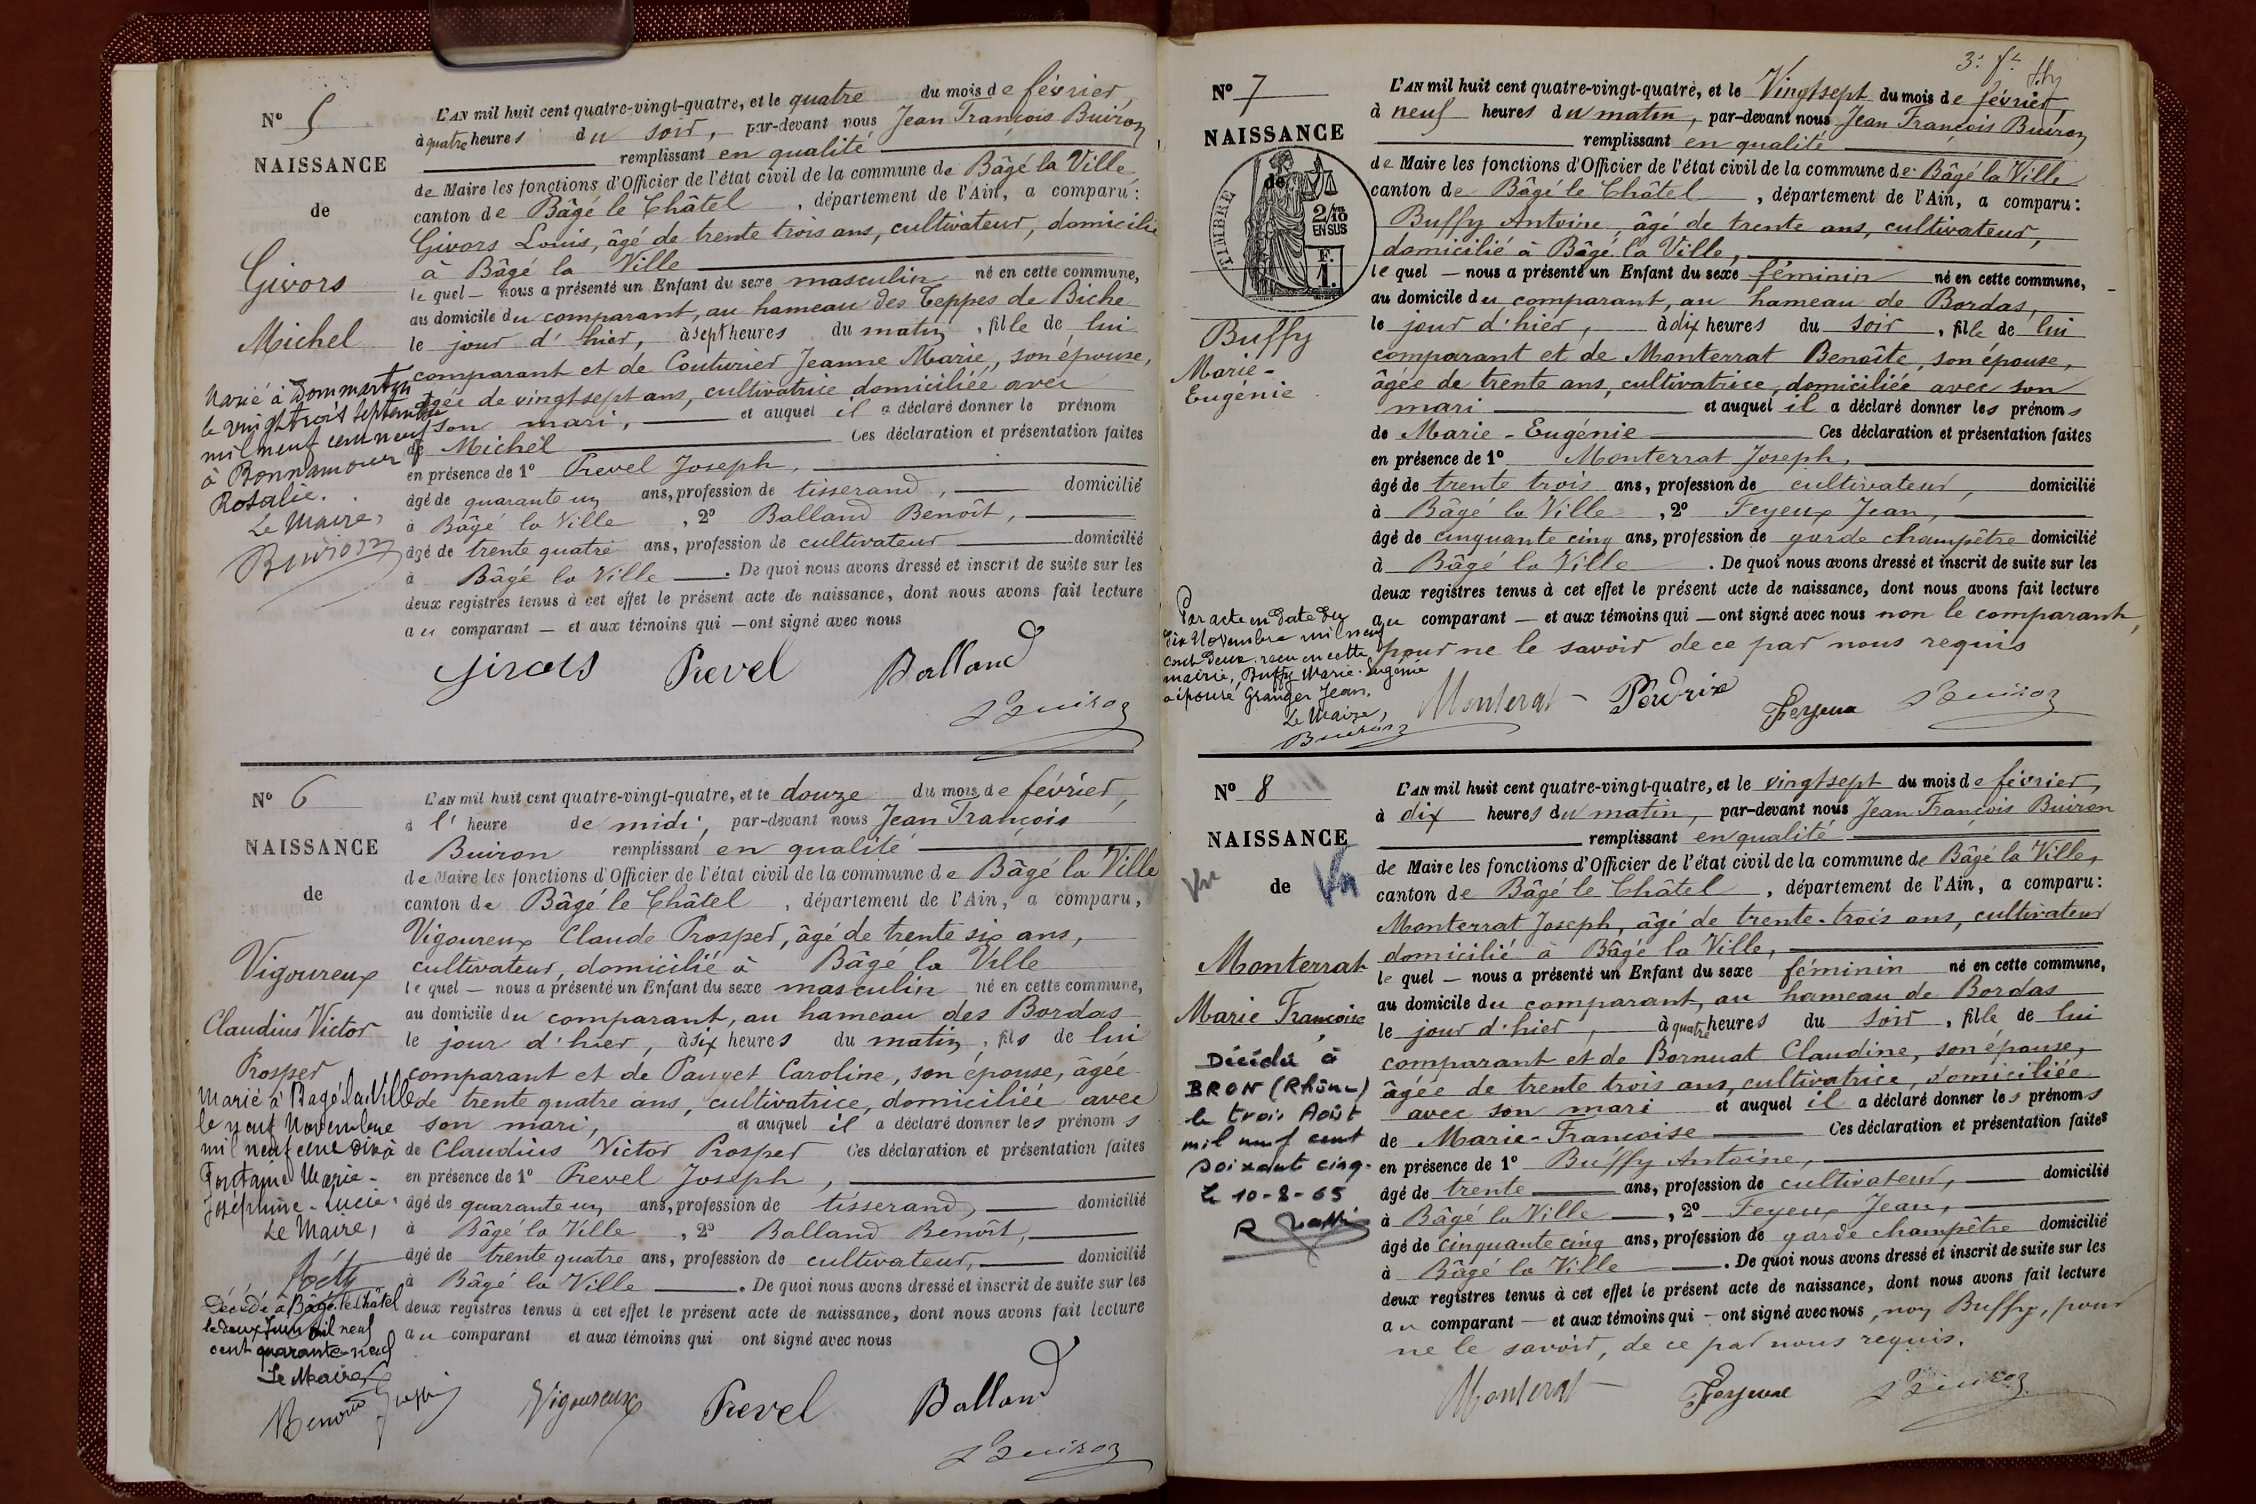 N° 5
NAISSANCE
de
Givors
Michel
Marié à Dommartin
le vingt trois septembre
mil neuf cent neuf
à Bonnamour
Rosalie.
Le Maire,
Buiron
L'AN mil huit cent quatre-vingt-quatre, et le quatre du mois de février,
à quatre heures du soir, par-devant nous Jean François Buiron
remplissant en qualité
de Maire les fonctions d'Officier de l'état civil de la commune de Bâgé la Ville,
canton de Bâgé le Châtel, département de l'Ain, a comparu:
Givors Louis, âgé de trente trois ans, cultivateur, domicilié
à Bâgé la Ville
lequel — nous a présenté un Enfant du sexe masculin né en cette commune,
au domicile du comparant, au hameau des Teppes de Biche
le jour d'hier, à sept heures du matin, fils de lui
comparant et de Couturier Jeanne Marie, son épouse,
âgée de vingt sept ans, cultivatrice domiciliée avec
son mari, et auquel il a déclaré donner le prénom
de Michel Ces déclaration et présentation faites
en présence de 1° Prevel Joseph,
âgé de quarante un ans, profession de tisserand, domicilié
à Bâgé la Ville, 2° Balland Benoît,
âgé de trente quatre ans, profession de cultivateur domicilié
à Bâgé la Ville. De quoi nous avons dressé et inscrit de suite sur les
deux registres tenus à cet effet le présent acte de naissance, dont nous avons fait lecture
au comparant — et aux témoins qui — ont signé avec nous
Givors Prevel Balland
Buiron
N° 6
NAISSANCE
de
Vigoureux
Claudius Victor
Prosper
Marié à Bagé-la-Ville
le neuf Novembre
mil neuf cent dix à
Fontaine Marie-
Joséphine-Lucie.
Le Maire,
Décédé à Bâgé-le-Châtel
le deux Juin mil neuf
cent quarante-neuf
Le Maire
L'AN mil huit cent quatre-vingt-quatre, et le douze du mois de février,
à l'heure de midi, par-devant nous Jean François
Buiron remplissant en qualité
de Maire les fonctions d'Officier de l'état civil de la commune de Bâgé la Ville
canton de Bâgé le Châtel, département de l'Ain, a comparu,
Vigoureux Claude Prosper, âgé de trente six ans,
cultivateur, domicilié à Bâgé la Ville
lequel — nous a présenté un Enfant du sexe masculin né en cette commune,
au domicile du comparant, au hameau des Bordas
le jour d'hier, à six heures du matin, fils de lui
comparant et de Pauget Caroline, son épouse, âgée
de trente quatre ans, cultivatrice, domiciliée avec
son mari, et auquel il a déclaré donner les prénoms
de Claudius Victor Prosper Ces déclaration et présentation faites
en présence de 1° Prevel Joseph,
âgé de quarante un ans, profession de tisserand, domicilié
à Bâgé la Ville, 2° Balland Benoît,
âgé de trente quatre ans, profession de cultivateur, domicilié
à Bâgé la Ville. De quoi nous avons dressé et inscrit de suite sur les
deux registres tenus à cet effet le présent acte de naissance, dont nous avons fait lecture
au comparant et aux témoins qui ont signé avec nous
Vigoureux Prevel Balland
Buiron
N° 7
NAISSANCE
de
TIMBRE
2/10
EN SUS
F.
1.
Buffy
Marie-
Eugénie
Par acte en date du
dix Novembre mil neuf
cent deux, reçu en cette
mairie, Buffy Marie-Eugénie
a épousé Granger Jean.
Le Maire,
Buiron
L'AN mil huit cent quatre-vingt-quatre, et le Vingt sept du mois de février,
à neuf heures du matin, par-devant nous Jean François Buiron
remplissant en qualité
de Maire les fonctions d'Officier de l'état civil de la commune de Bâgé la Ville
canton de Bâgé le Châtel, département de l'Ain, a comparu:
Buffy Antoine, âgé de trente ans, cultivateur,
domicilié à Bâgé la Ville,
lequel — nous a présenté un Enfant du sexe féminin né en cette commune,
au domicile du comparant, au hameau de Bordas,
le jour d'hier, à dix heures du soir, fille de lui
comparant et de Monterrat Benoîte, son épouse,
âgée de trente ans, cultivatrice, domiciliée avec son
mari et auquel il a déclaré donner les prénoms
de Marie-Eugénie Ces déclaration et présentation faites
en présence de 1° Monterrat Joseph,
âgé de trente trois ans, profession de cultivateur, domicilié
à Bâgé la Ville, 2° Feyeux Jean,
âgé de cinquante cinq ans, profession de garde champêtre domicilié
à Bâgé la Ville. De quoi nous avons dressé et inscrit de suite sur les
deux registres tenus à cet effet le présent acte de naissance, dont nous avons fait lecture
au comparant — et aux témoins qui — ont signé avec nous non le comparant,
pour ne le savoir de ce par nous requis
Monterat Perdrix Feyeux Buiron
N° 8
NAISSANCE
de
Vu
Monterrat
Marie Françoise
Décédée à
BRON (Rhône)
le trois Août
mil neuf cent
soixante cinq.
Le 10-8-65
L'AN mil huit cent quatre-vingt-quatre, et le vingt sept du mois de février,
à dix heures du matin, par-devant nous Jean François Buiron
remplissant en qualité
de Maire les fonctions d'Officier de l'état civil de la commune de Bâgé la Ville,
canton de Bâgé le Châtel, département de l'Ain, a comparu:
Monterrat Joseph, âgé de trente-trois ans, cultivateur
domicilié à Bâgé la Ville,
lequel — nous a présenté un Enfant du sexe féminin né en cette commune,
au domicile du comparant, au hameau de Bordas
le jour d'hier, à quatre heures du soir, fille de lui
comparant et de Bornuat Claudine, son épouse,
âgée de trente trois ans, cultivatrice, domiciliée
avec son mari et auquel il a déclaré donner les prénoms
de Marie-Françoise Ces déclaration et présentation faites
en présence de 1° Buffy Antoine,
âgé de trente ans, profession de cultivateur, domicilié
à Bâgé la Ville, 2° Feyeux Jean,
âgé de cinquante cinq ans, profession de garde champêtre domicilié
à Bâgé la Ville. De quoi nous avons dressé et inscrit de suite sur les
deux registres tenus à cet effet le présent acte de naissance, dont nous avons fait lecture
au comparant — et aux témoins qui — ont signé avec nous, non Buffy, pour
ne le savoir, de ce par nous requis.
Monterat Feyeux Buiron